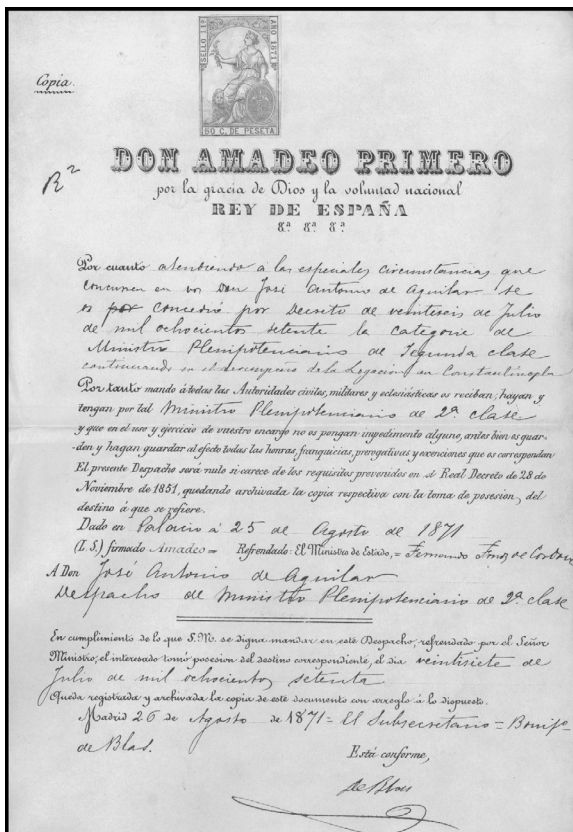 SELLO 11º
AÑO 1871
50 C. DE PESETA
Copia.
DON AMADEO PRIMERO
por la gracia de Dios y la voluntad nacional
REY DE ESPAÑA
&ª &ª &ª
Por cuanto atendiendo á las especiales circunstancias que
concurren en vos Don José Antonio de Aguilar se
os por concedió por Decreto de veintiseis de Julio
de mil ochocientos setenta la categoria de
Ministro Plenipotenciario de Segunda clase
continuando en el desempeño de la Legacion en Constantinopla
Por tanto mando á todas las Autoridades civiles, militares y eclesiásticas os reciban, hayan y
tengan por tal Ministro Plenipotenciario de 2ª clase
y que en el uso y ejercicio de vuestro encargo no os pongan impedimento alguno, antes bien os guar-
-den y hagan guardar al efecto todas las honras, franquicias, prerogativas y exenciones que os correspondan
El presente Despacho será nulo si carece de los requisitos prevenidos en el Real Decreto de 28 de
Noviembre de 1851, quedando archivada la copia respectiva con la toma de posesion, del
destino á que se refiere.
Dado en Palacio á 25 de Agosto de 1871
(L.S.) firmado Amadeo = Refrendado: El Ministro de Estado, = Fernando Fnz de Cordova
A Don José Antonio de Aguilar
Despacho de Ministro Plenipotenciario de 2ª clase
En cumplimiento de lo que S.M. se digna mandar en este Despacho, refrendado por el Señor
Ministro, el interesado tomó posesion del destino correspondiente, el dia veintisiete de
Julio de mil ochocientos setenta
Queda registrada y archivada la copia de este documento con arreglo á lo dispuesto.
Madrid 26 de Agosto de 1871 = El Subsecretario = Bonifo
de Blas.
Está conforme,
de Blas